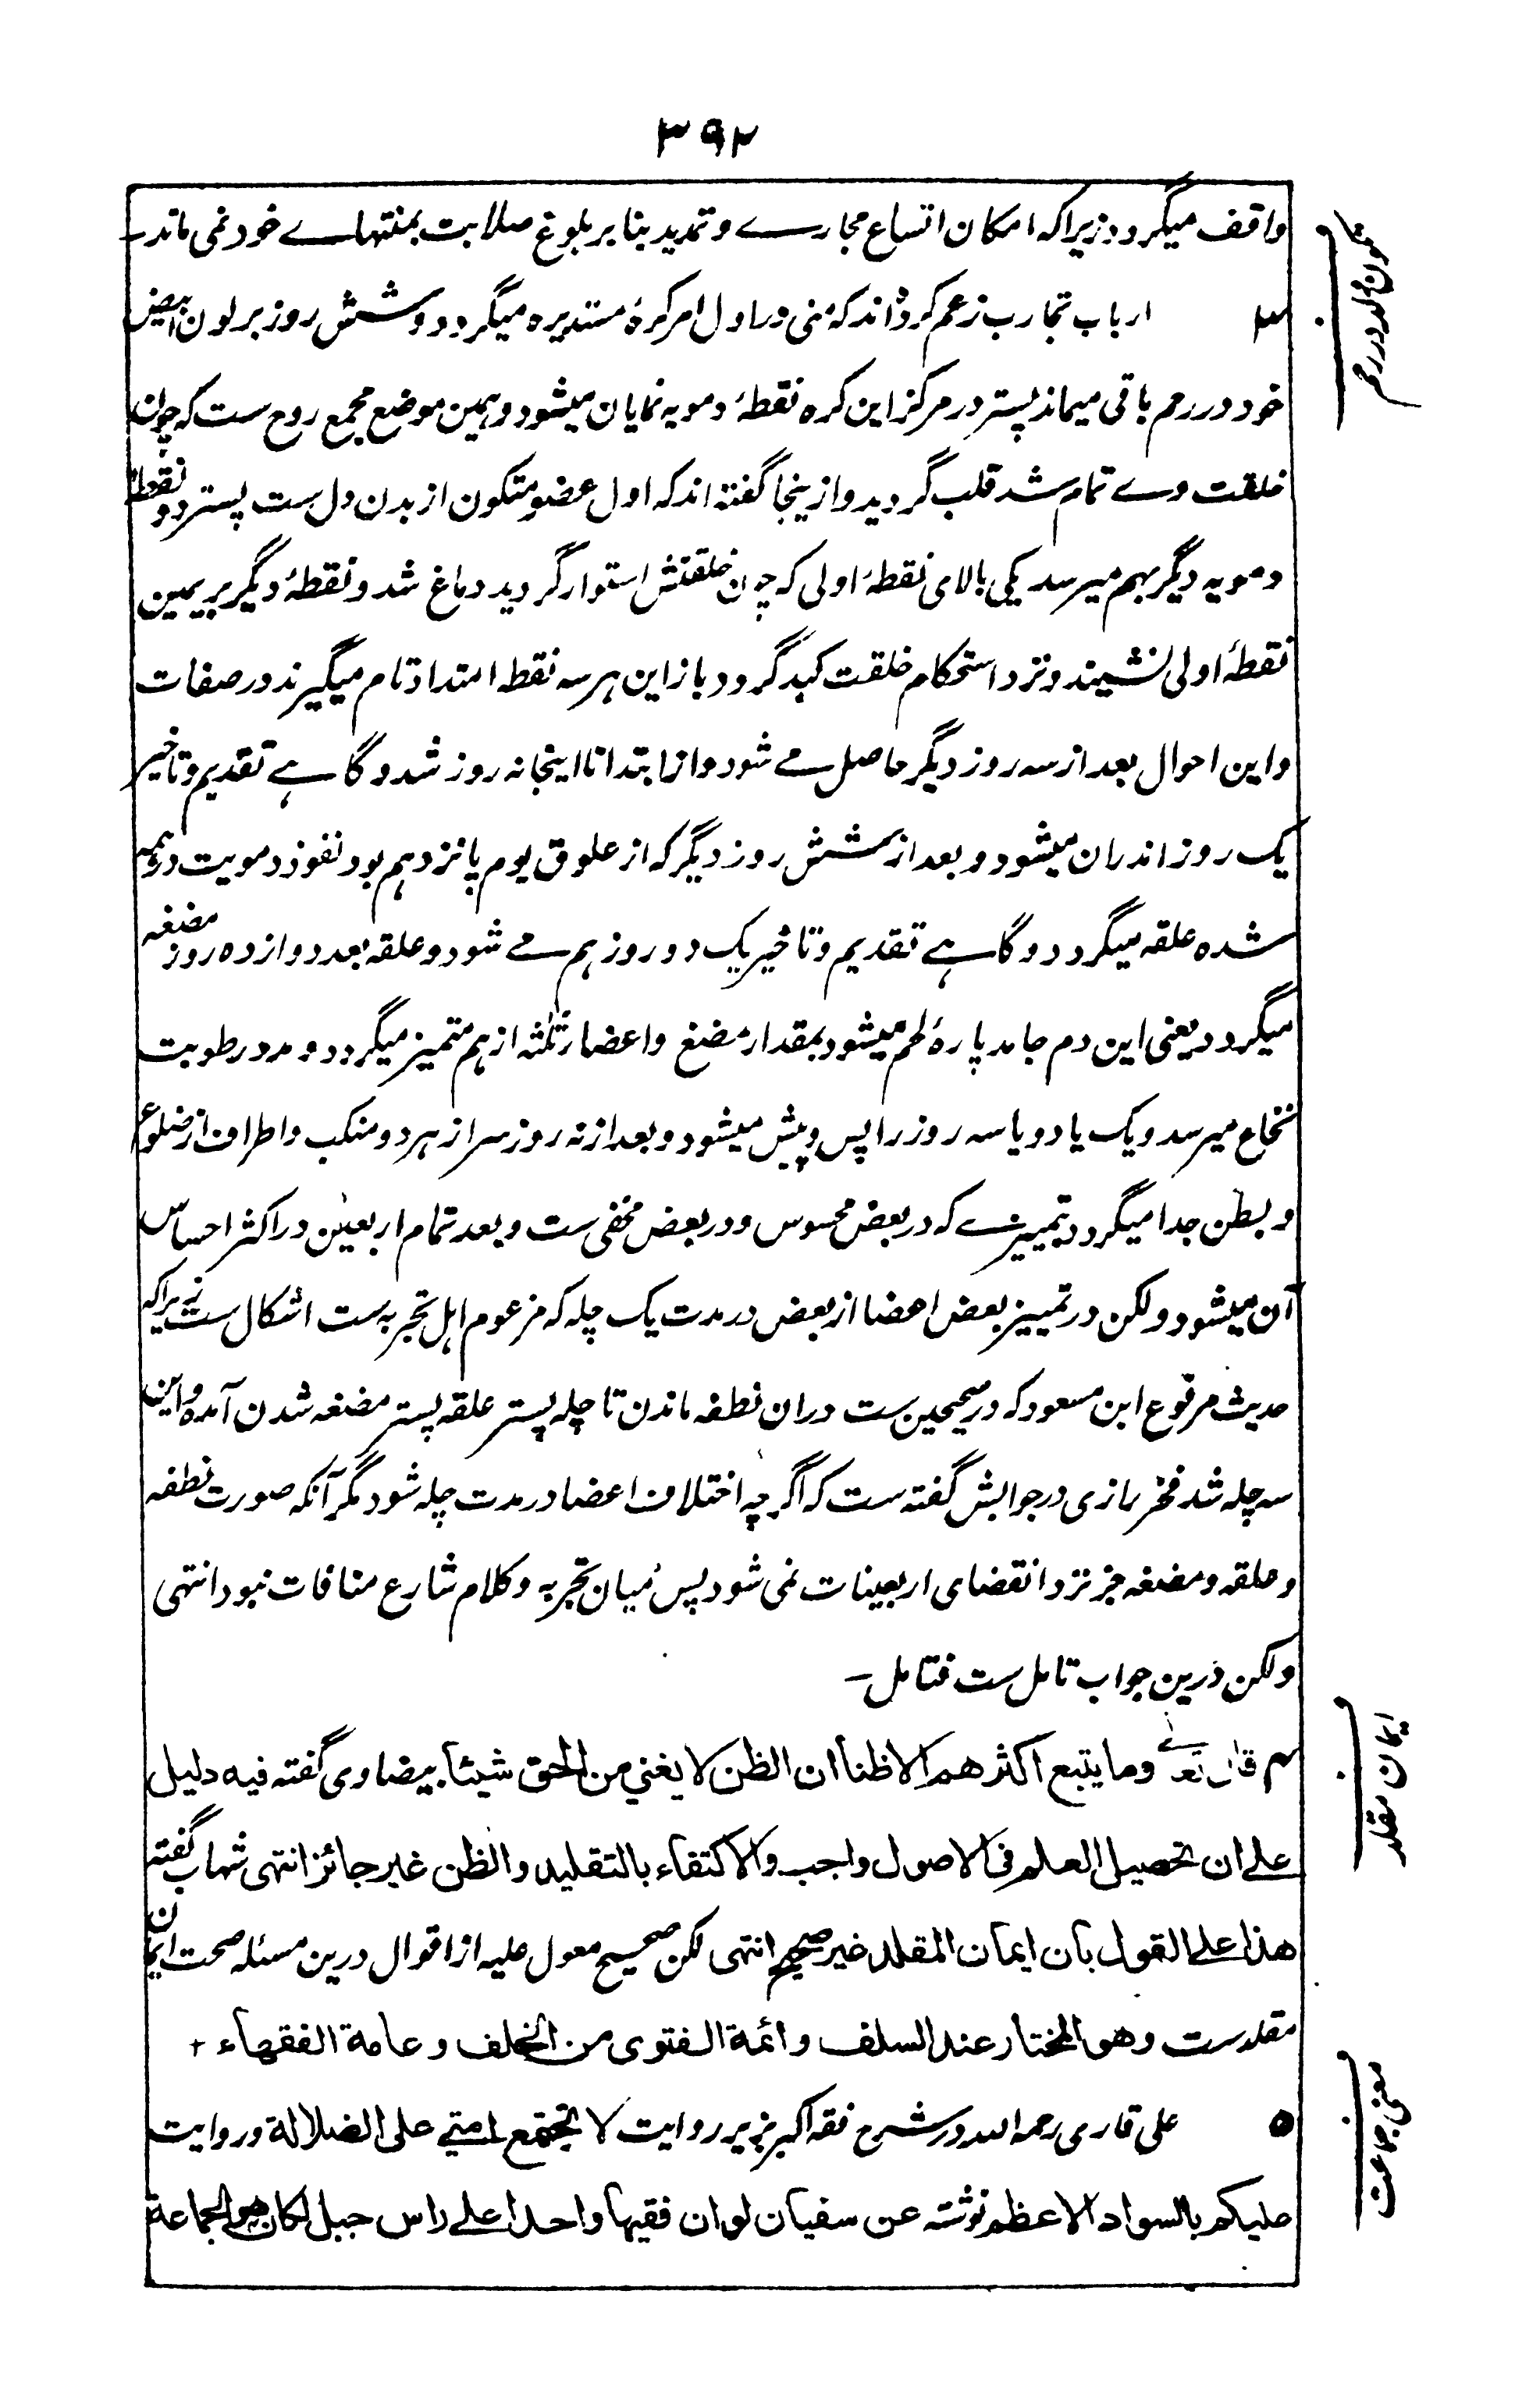 ۳۹۲
واقف میگردد زیرا که امکان اتساع مجارے و تمدید بنا بر بلوغ صلابت بمنتہاے خود نمی ماند۔
تکون ولد در رحم
۳ ارباب تجارب زعم کردہ اند کہ منی در اول امر کرۂ مستدیرہ میگردد و شش روز بر لون ابیض
خود در رحم باقی میماند پستر در مرکز این کرہ نقطۂ دمویہ نمایان میشود و ہمین موضع مجمع روح ست کہ چون
خلقت وے تمام شد قلب گردید و از ینجا گفتہ اند کہ اول عضو متکون از بدن دل ست پستر دو نقطۂ
دمویہ دیگر بہم میرسد یکی بالای نقطۂ اولی کہ چون خلقتش استوار گردید دماغ شد و نقطۂ دیگر بر یمین
نقطۂ اولی نشیند و نزد استحکام خلقت کبد گردد باز این ہر سہ نقطہ امتداد تام میگیرند در صفات
و این احوال بعد از سہ روز دیگر حاصل مے شود و از ابتدا تا اینجا نہ روز شد و گاہے تقدیم و تاخیر
یک روز اندران میشود و بعد از شش روز دیگر کہ از علوق یوم پانزدہم بود نفوذ دمویت در ہمہ
شدہ علقہ میگردد و گاہے تقدیم و تاخیر یک دو روز ہم مے شود و علقہ بعد دوازدہ روز مضغہ
میگردد یعنی این دم جامد پارۂ لحم میشود بمقدار مضغ و اعضاء ثلثہ از ہم متمیز میگردد و مدد رطوبت
نخاع میرسد و یک یا دو یا سہ روز را پس و پیش میشود و بعد از نہ روز سر از ہر دو منکب و اطراف از ضلوع
و بطن جدا میگردد بتمییزے کہ در بعض محسوس و در بعض مخفی ست و بعد تمام اربعین در اکثر احساس
آن میشود و لکن در تمییز بعض اعضا از بعض در مدت یک چلہ کہ مزعوم اہل تجربہ ست اشکال ست زیراکہ
حدیث مرفوع ابن مسعود کہ در صحیحین ست دران نطفہ ماندن تا چلہ پستر علقہ پستر مضغہ شدن آمدہ و این
سہ چلہ شد فخر رازی در جوابش گفتہ ست کہ اگر چہ اختلاف اعضا در مدت چلہ شود مگر آنکہ صورت نطفہ
و علقہ و مضغہ جز نزد انقضای اربعینات نمی شود پس میان تجربہ و کلام شارع منافات نبود انتہی
و لکن درین جواب تامل ست فتامل۔
ایمان مقلد
۴ قال تعالے وما یتبع اکثرھم الا ظنا ان الظن لا یغنی من الحق شیئا بیضاوی گفتہ فیہ دلیل
علی ان تحصیل العلم فی الاصول واجب والاکتفاء بالتقلید والظن غیر جائز انتہی شہاب گفتہ
ھذا علی القول بان ایمان المقلد غیر صحیح انتہی لکن صحیح معول علیہ از اقوال درین مسئلہ صحت ایمان
مقلدست وھو المختار عند السلف وائمة الفتوی من الخلف و عامة الفقھاء +
معنی جماعت
۵ علی قاری رحمہ اللہ در شرح فقہ اکبر زیر روایت لا تجتمع امتی علی الضلالة و روایت
علیکم بالسواد الاعظم نوشتہ عن سفیان لو ان فقیھا واحدا علی راس جبل لکان ھو الجماعة